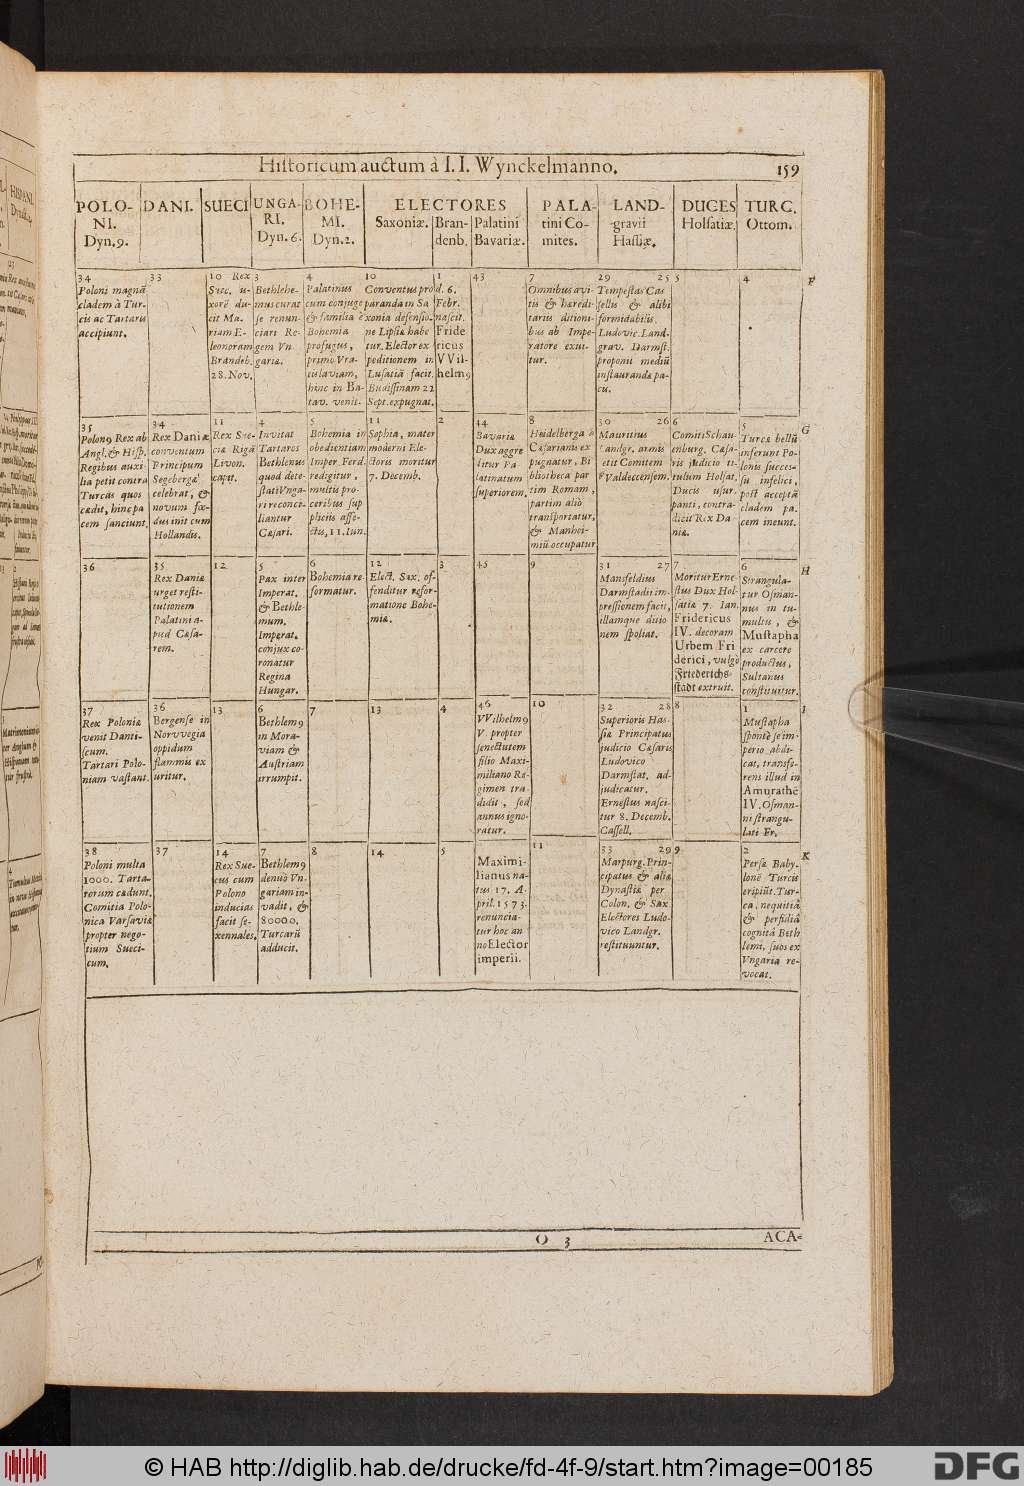 Historicum auctum à I. I. Wynckelmanno.
159
POLO-
NI.
Dyn. 9.
DANI.
SUECI
UNGA-
RI.
Dyn. 6.
BOHE-
MI.
Dyn. 2.
ELECTORES
Saxoniæ.
Bran-
denb.
Palatini
Bavariæ.
PALA-
tini Co-
mites.
LAND-
gravii
Hassiæ.
DUCES
Holsatiæ.
TURC.
Ottom.
34
Poloni magnā
cladem à Tur-
cis ac Tartaris
accipiunt.
33
10 Rex
Suec. u-
xorē du-
cit Ma-
riam E-
leonoram
Brandeb.
28. Nov.
3
Bethlehe-
mus curat
se renun-
ciari Re-
gem Vn
gariæ.
4
Palatinus
cum conjuge
& familia è
Bohemia
profugus,
primo Vra-
tislaviam,
hinc in Ba-
tav. venit.
10
Conventus pro
paranda in Sa
xonia defensio-
ne Lipsiæ habe
tur. Elector ex
peditionem in
Lusatiā facit.
Budissinam 22
Sept. expugnat.
1
d. 6.
Febr.
nascit.
Fride
ricus
VVil-
helm9
43
7
Omnibus avi-
tis & hæredi-
tariis ditioni-
bus ab Impe-
ratore exui-
tur.
29 25
Tempestas Cas
sellis & alibi
formidabilis.
Ludovic. Land-
grav. Darmst.
proponit mediū
instaurandæ pa-
cu.
5
4
F
35
Polon9 Rex ab
Angl. & Hisp.
Regibus auxi-
lia petit contra
Turcas quos
cædit, hinc pa
cem sanciunt.
34
Rex Daniæ
conventum
Principum
Segebergæ
celebrat, &
novum fœ-
dus init cum
Hollandis.
11
Rex Sue-
ciæ Rigā
Livon.
capit.
4
Invitat
Tartaros
Bethlenus
quod dete-
stati Vnga-
ri reconci-
liantur
Cæsari.
5
Bohemia in
obedientiam
Imper. Ferd.
redigitur,
multis pro-
ceribus sup
pliciis affe-
ctis, 11. Iun.
11
Sophia, mater
moderni Ele-
ctoris moritur
7. Decemb.
2
44
Bavariæ
Dux aggre
ditur Pa-
latinatum
superiorem.
8
Heidelberga à
Cæsarianis ex
pugnatur, Bi
bliotheca par
tim Romam,
partim aliò
transportatur,
& Manhei-
miū occupatur
30 26
Mauritius
Landgr. armis
petit Comitem
Valdeccensem.
6
Comiti Schau-
enburg. Cæsa-
ris judicio ti-
tulum Holsat.
Ducis usur-
panti, contra-
dicit Rex Da-
niæ.
5
Turcæ bellū
inferunt Po-
lonis succes-
su infelici,
post acceptā
cladem pa-
cem ineunt.
G
36
35
Rex Daniæ
urget resti-
tutionem
Palatini a-
pud Cæsa-
rem.
12
5
Pax inter
Imperat.
& Bethle-
mum.
Imperat.
conjux co-
ronatur
Regina
Hungar.
6
Bohemia re-
formatur.
12
Elect. Sax. of-
fenditur refor-
matione Bohe-
miæ.
3
45
9
31 27
Mansfeldius
Darmstadii im-
pressionem facit,
illamque ditio
nem spoliat.
7
Moritur Erne-
stus Dux Hol-
satiæ 7. Ian.
Fridericus
IV. decoram
Urbem Fri
derici, vulgò
Friederichs-
stadt extruit.
6
Strangula-
tur Osman-
nus in tu-
multu, &
Mustapha
ex carcere
productus,
Sultanus
constituitur.
H
37
Rex Poloniæ
venit Danti-
scum.
Tartari Polo-
niam vastant.
36
Bergense in
Norvvegia
oppidum
flammis ex
uritur.
13
6
Bethlem9
in Mora-
viam &
Austriam
irrumpit.
7
13
4
46
VVilhelm9
V. propter
senectutem
filio Maxi-
miliano Re-
gimen tra-
didit, sed
annus igno-
ratur.
10
32 28
Superioris Has-
siæ Principatus
judicio Cæsaris
Ludovico
Darmstat. ad-
judicatur.
Ernestus nasci-
tur 8. Decemb.
Cassell.
8
1
Mustapha
spontè se im-
perio abdi-
cat, transfe-
rens illud in
Amurathē
IV. Osman-
ni strangu-
lati Fr.
I
38
Poloni multa
1000. Tarta-
rorum cædunt.
Comitia Polo-
nica Varsaviæ
propter nego-
tium Sueci-
cum.
37
14
Rex Sue-
cus cum
Polono
inducias
facit se-
xennales.
7
Bethlem9
denuò Vn-
gariam in-
vadit, &
80000.
Turcarū
adducit.
8
14
5
Maximi-
lianus na-
tus 17. A-
pril. 1573.
renuncia-
tur hoc an
no Elector
imperii.
11
33 29
Marpurg. Prin-
cipatus & aliæ
Dynastiæ per
Colon. & Sax
Electores Ludo-
vico Landgr.
restituuntur.
9
2
Persæ Baby-
lonē Turcis
eripiūt. Tur-
ca, nequitiâ
& perfidiâ
cognitâ Beth
lemi, suos ex
Vngaria re-
vocat.
K
O 3
ACA-
© HAB http://diglib.hab.de/drucke/fd-4f-9/start.htm?image=00185
DFG